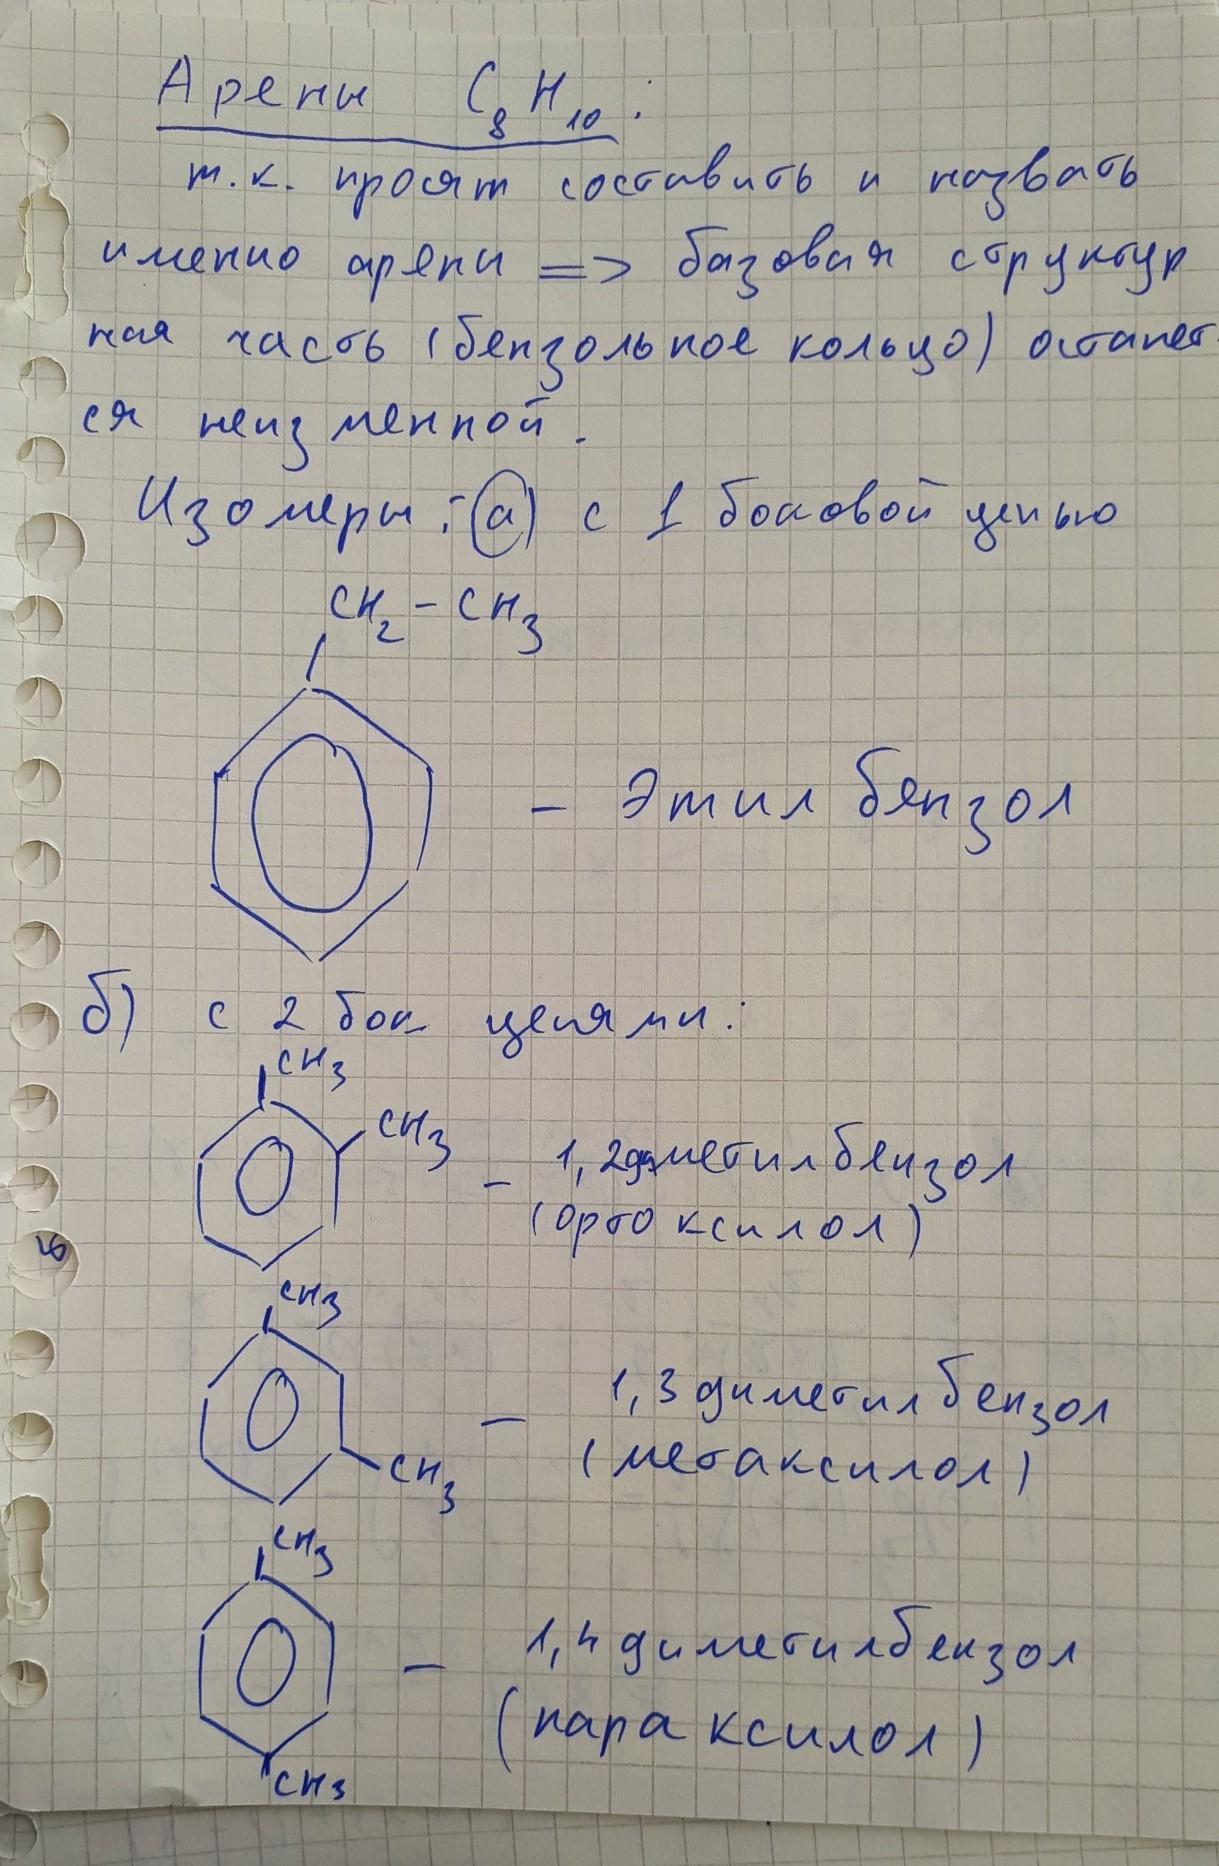 Арены C₈H₁₀:
т.к. просят составить и назвать
именно арены => базовая структур
ная часть (бензольное кольцо) останет
ся неизменной.
Изомеры: а) с 1 боковой цепью
CH₂ - CH₃
- Этил бензол
б) с 2 бок цепями:
CH₃
CH₃
- 1,2диметилбензол
(орто ксилол)
CH₃
- 1,3 диметил бензол
CH₃
(метаксилол)
CH₃
- 1,4 диметилбензол
(пара ксилол)
CH₃